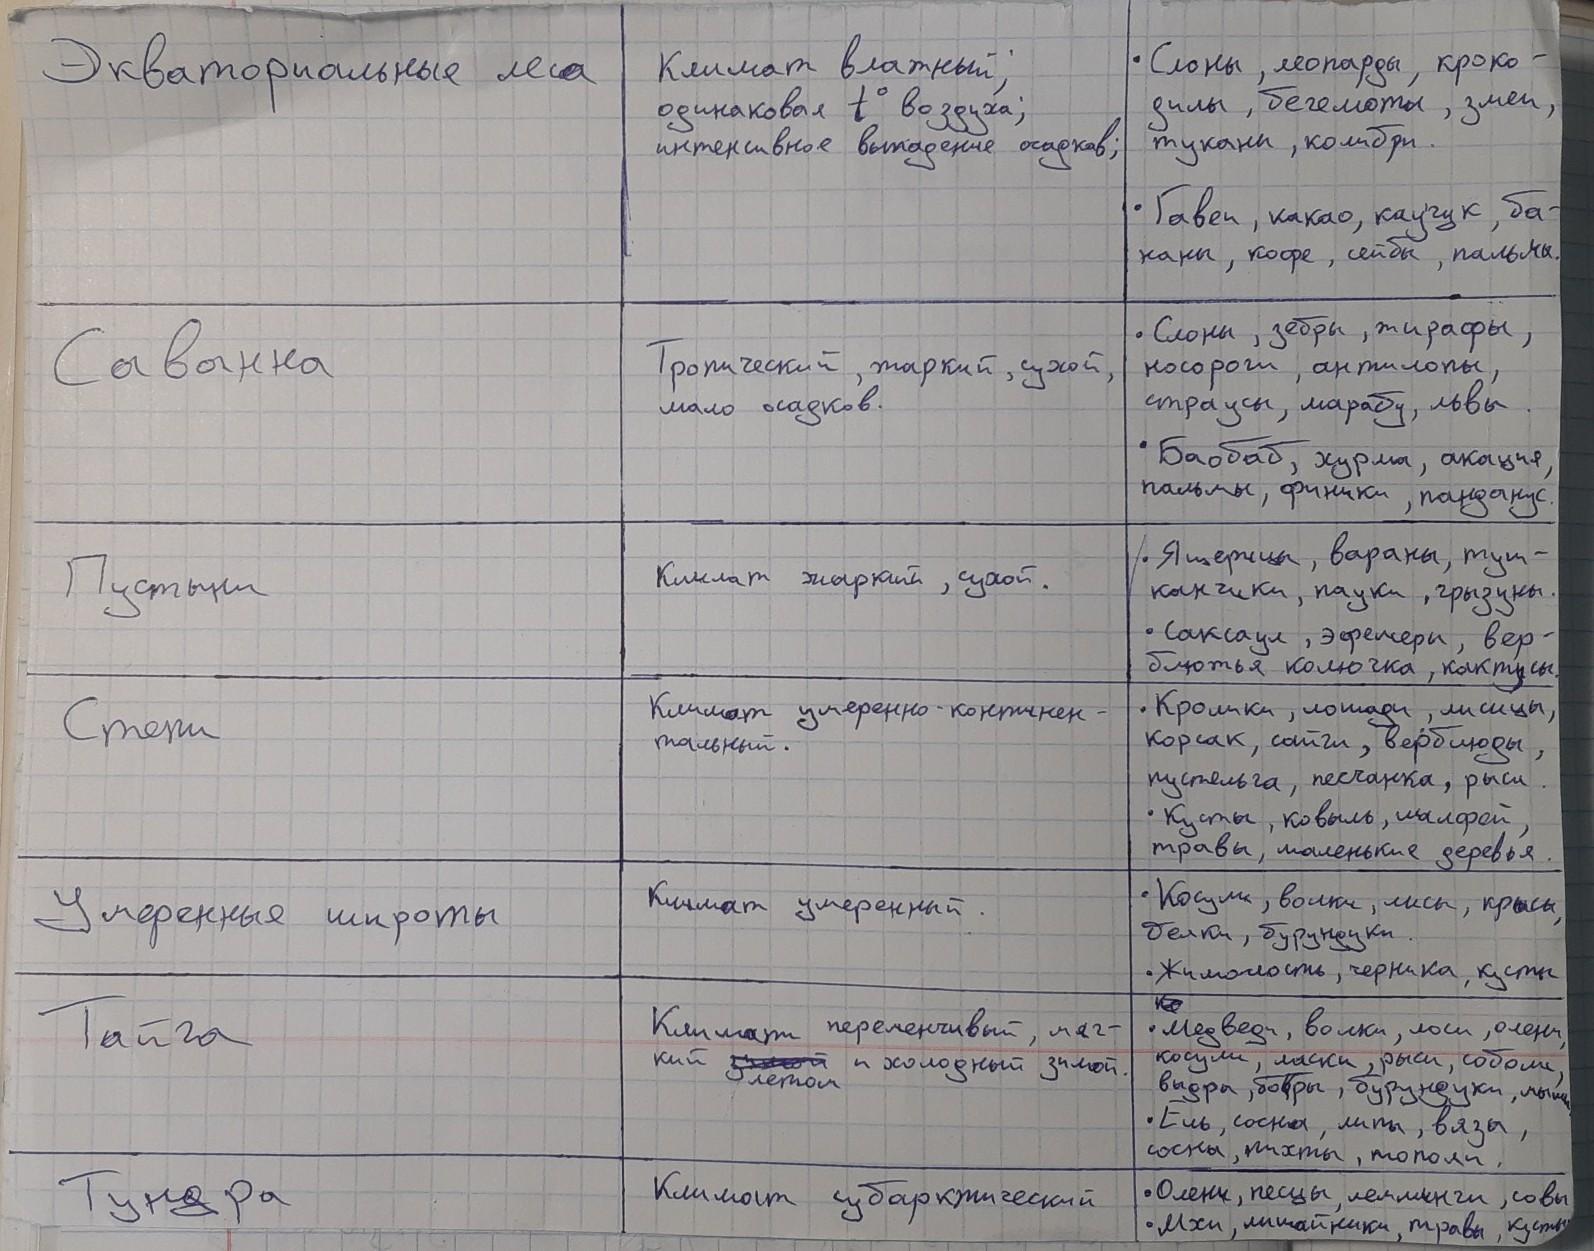 Экваториальные леса
Климат влажный;
одинаковая t° воздуха;
интенсивное выпадение осадков;
• Слоны, леопарды, кроко-
дилы, бегемоты, змеи,
туканы, колибри.
• Гавеи, какао, каучук, ба-
наны, кофе, сейбы, пальмы.
Саванна
Тропический, жаркий, сухой,
мало осадков.
• Слоны, зебры, жирафы,
носороги, антилопы,
страусы, марабу, львы.
• Баобаб, хурма, акация,
пальмы, финики, панданус.
Пустыни
Климат жаркий, сухой.
• Ящерицы, вараны, туш-
канчики, пауки, грызуны.
• Саксаул, эфемеры, вер-
блютья колючка, кактусы.
Степи
Климат умеренно-континен-
тальный.
• Кролики, лошади, лисицы,
корсак, сайги, верблюды,
пустельга, песчанка, рыси.
• Кусты, ковыль, шалфей,
травы, маленькие деревья.
Умеренные широты
Климат умеренный.
• Косули, волки, лисы, крысы,
белки, бурундуки.
• Жимолость, черника, кусты
Тайга
Климат переменчивый, мяг-
кий летом и холодный зимой.
• Медведи, волки, лоси, олени,
косули, ласки, рыси, соболи,
выдра, бобры, бурундуки, мыши
• Ель, сосна, липы, вязы,
сосны, пихты, тополи.
Тундра
Климат субарктический
• Олени, песцы, лемминги, совы
• Мхи, лишайники, травы, кусты